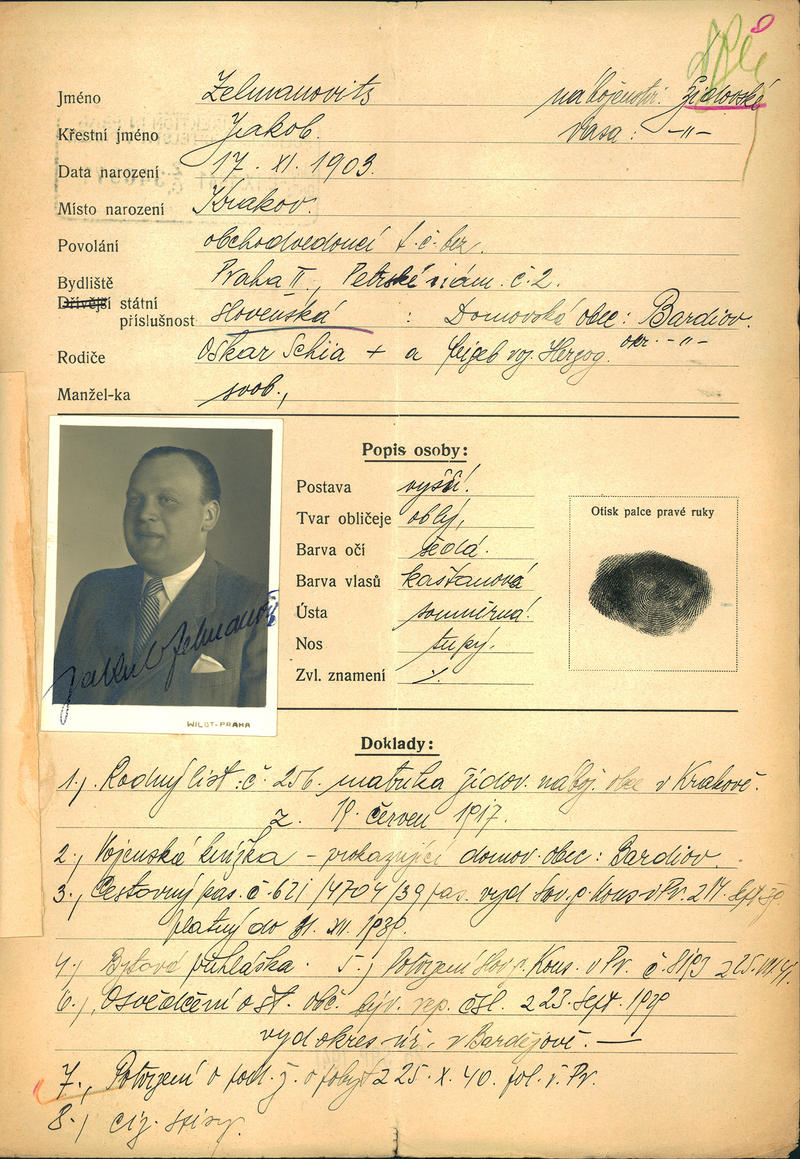 Jméno Zelmanovits náboženství: židovské
Křestní jméno Jakob. rasa: -"-
Data narození 17. XI. 1903.
Místo narození Krakov.
Povolání obchodvedoucí t.č. bez.
Bydliště Praha II., Petrské nám. č. 2.
Dřívější státní
příslušnost slovenská : Domovská obec: Bardiov.
okr. -"-
Rodiče Oskar Schia + a Feigeb roz. Herzog.
Manžel-ka svob.,
Popis osoby:
Postava vyšší.
Tvar obličeje oblý,
Barva očí šedá.
Barva vlasů kaštanová
Ústa souměrná.
Nos tupý.
Zvl. znamení ·/.
Otisk palce pravé ruky
Jakub Zelmanovič
WILDT-PRAHA
Doklady:
1.) Rodný list: č. 256. matrika židov. nábož. obce v Krakově.
z. 19. červen 1917.
2., Vojenská knížka – prokazující domov. obec: Bardiov.
3., Cestovný pas. č. 621/4704/39 pas. vyd. Slov. g. Kons. v Pr. 214. Sept 39.
platný do 31. XII. 1939.
4.) Bytová přihláška. 5.) Potvrzení Slov. g. Kons. v Pr. č. 8193 z 25. VII. 41.
6.), Osvědčení o st. obč. býv. rep. čsl. z 23. Sept. 1939
vyd okres. úř. v Bardějově. —
7., Potvrzení o pod. ž. o pobyt z 25. X. 40. pol. ř. Pr.
8.)